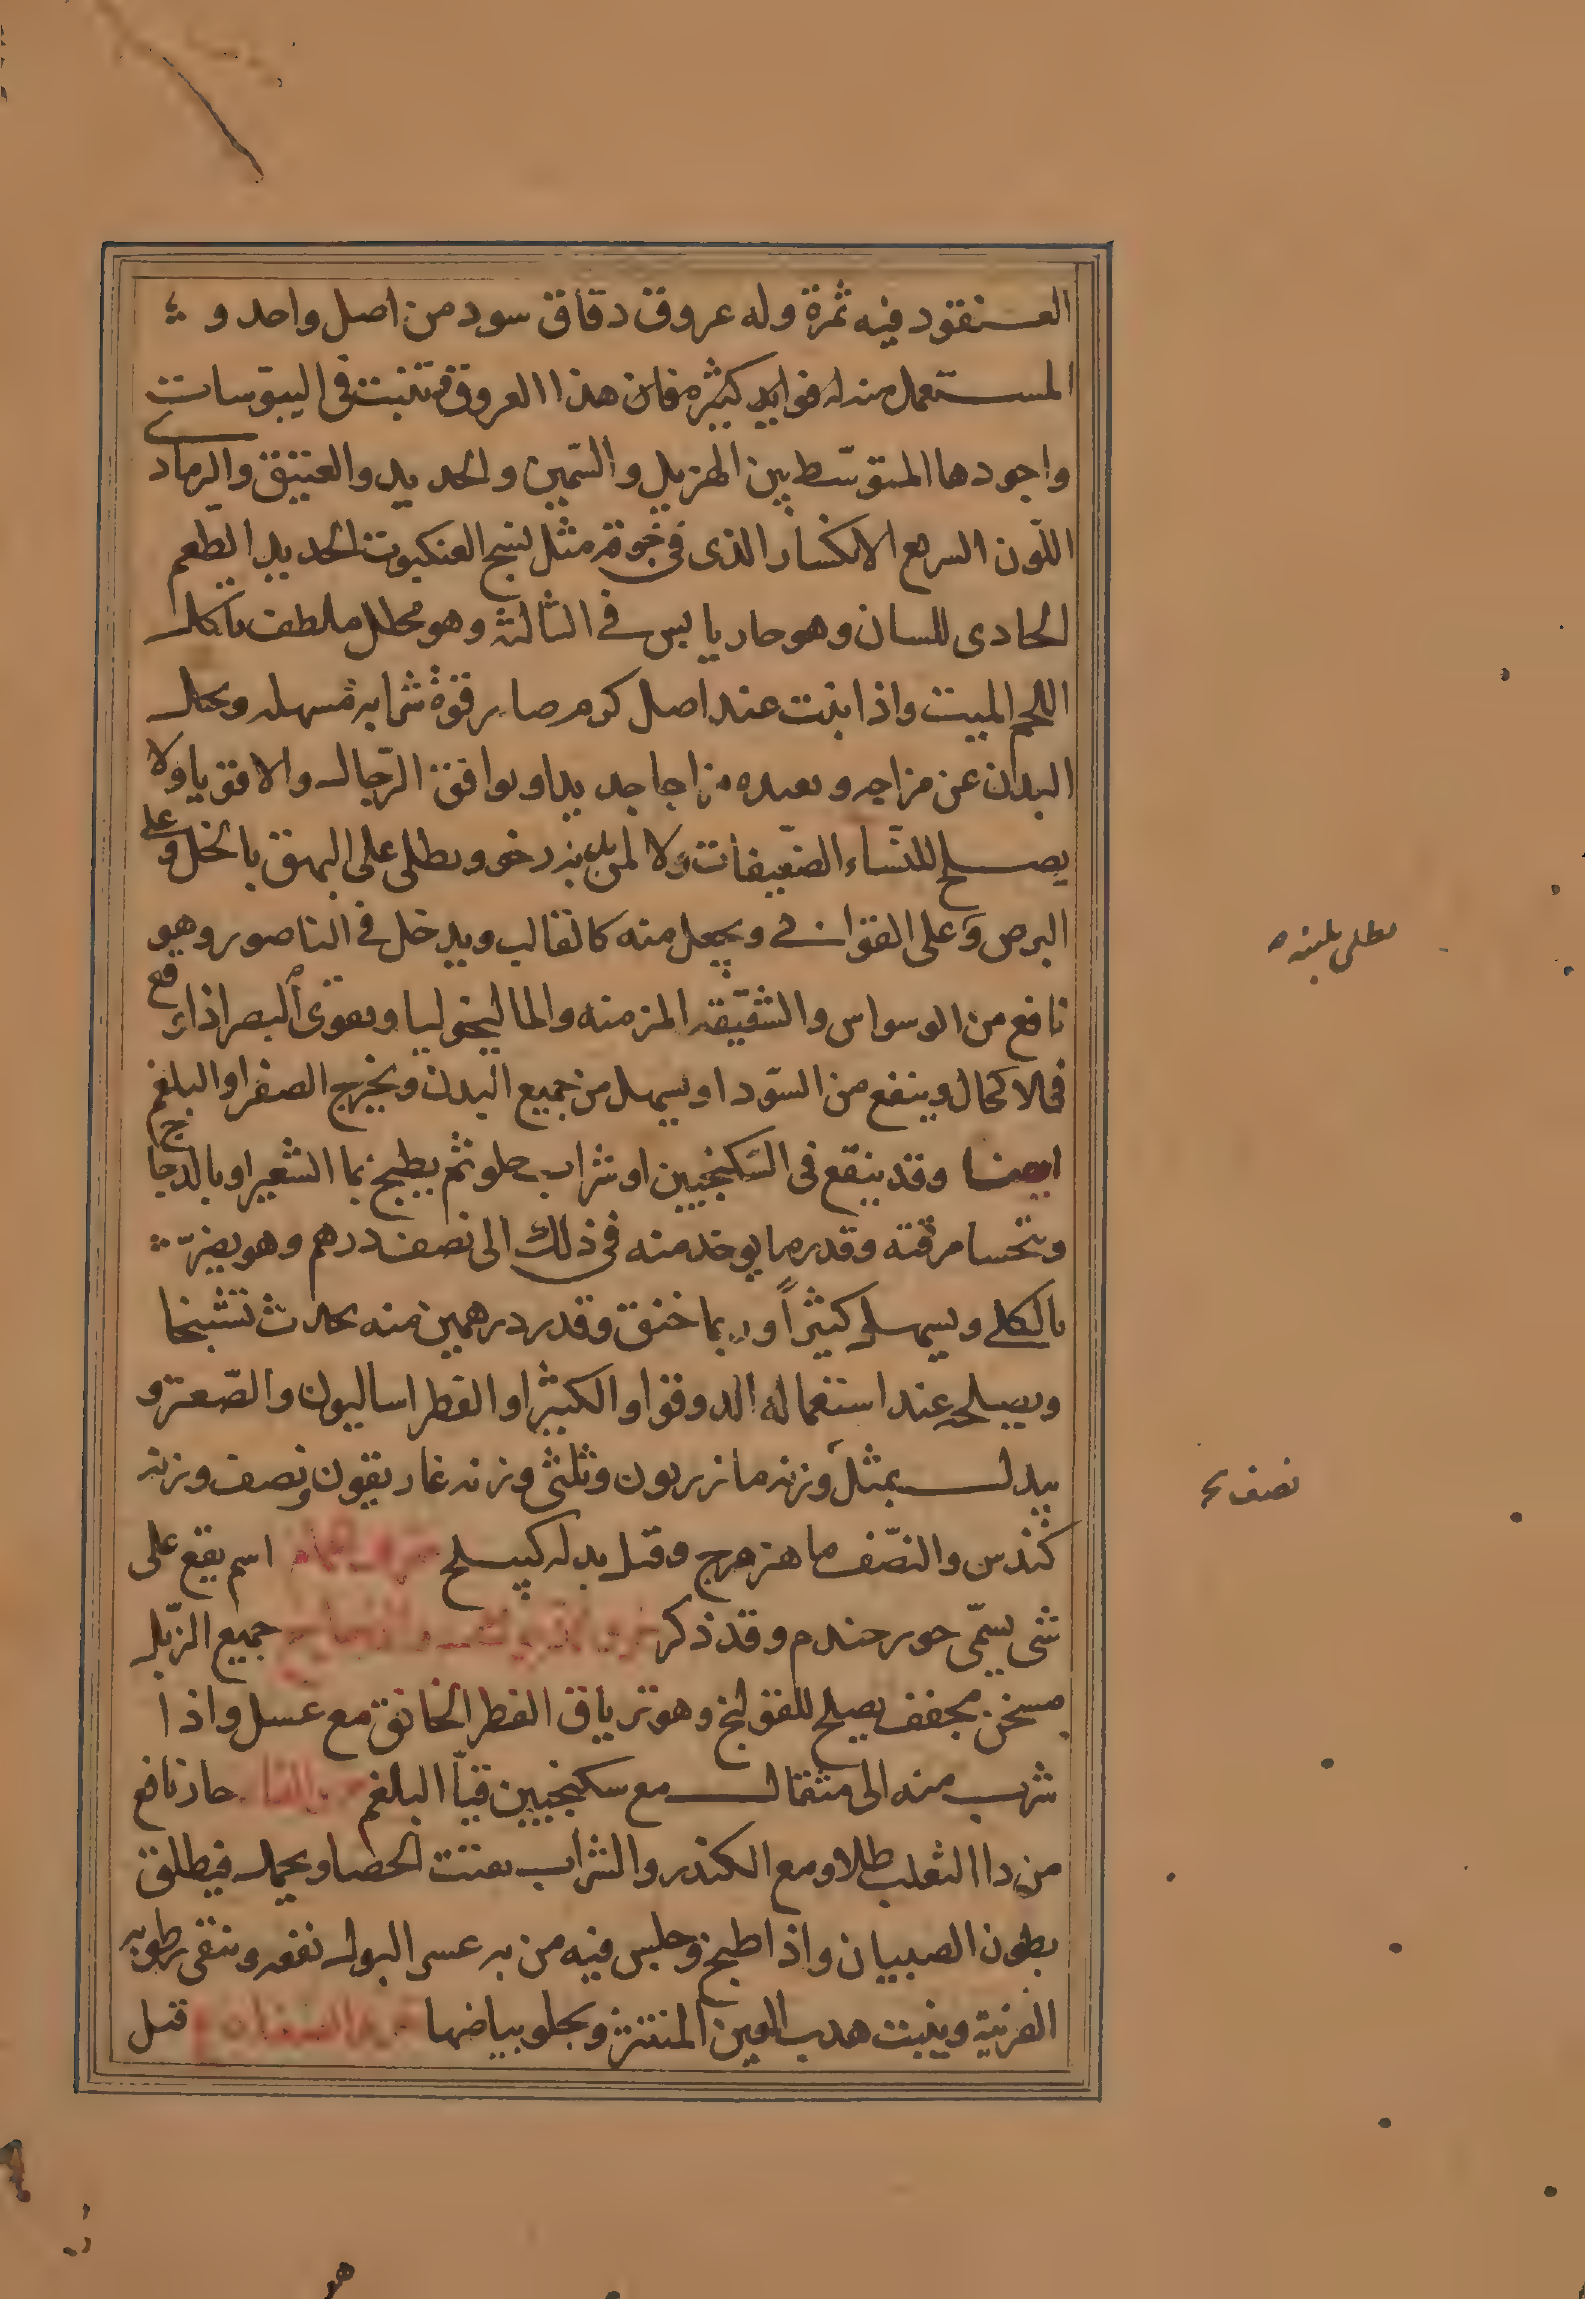 العنقود فيه ثمرة وله عروق دقاق سود من اصل واحد و
المستعمل منه له فوايد كثيرة فان هذا العروق تنبت فى اليبوسات
واجودها المتوسّط بين الهزيل والسّمين والحديد والعتيق والرمادى
اللّون السريع الانكسار الذى فى جوفه مثل نسج العنكبوت الحديد الطّعم
الحادى للسان وهو حار يابس فى الثالثة وهو محلل ملطف ياكل
اللحم الميت واذا نبت عند اصل كرم صار قوة شرابه مسهله ويحيل
البدان عن مزاجه ويعيده مزاجا جديدا ويوافق الرّجال والاقويا ولا
يصلح للنّساء الضّعيفات ولا لمن بدنه رخو ويطلى على البهق بالخل وعلى
البرص وعلى القوابى ويجعل منه كالقالب ويدخل فى الناصور وهو
نافع من الوسواس والشقيقه المزمنه والماليخوليا ويقوى البصر اذا وقع
فى الاكحال وينفع من السّودا ويسهل من جميع البدن ويخرج الصفرا والبلغم
ايضا وقد ينقع فى السّكنجبين او شراب حلو ثم يطبخ بما الشعير او بالدجاج
ويتحسا مرقته وقدر ما يوخذ منه فى ذلك الى نصف درهم وهو يضرّ
بالكلى ويسهل كثيراً وربما خنق وقدر درهمين منه يحدث تشنجا
ويصلحه عند استعماله الدوقوا والكثيرا والفطراساليون والصّعتر و
يبدل بمثل وزنه مازريون وثلثى وزنه غاريقون ونصف وزنه
كندس والنصّف ماهزهرج وقيل بدله كبيسلح اسم يقع على
شى يسمّى جور جندم وقد ذكر جميع الزّبل
مسخن مجفف يصلح للقولنج وهو ترياق الفطر الخانق مع عسل واذا
شرب منه الى مثقال مع سكنجبين قيأ البلغم حار نافع
من دا الثعلب طلا ومع الكندر والشراب يفتت الحصا ويحمل فيطلق
بطون الصبيان واذا طبخ وجلس فيه من به عسر البول نفعه وينقى رطوبه
القرنية وينبت هدب العين المنتثرة ويجلو بياضها قيل
نصف